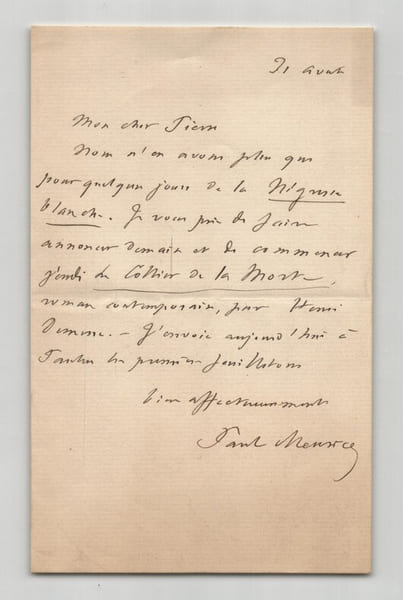 31 avril
Mon cher Pierre
Nous n'en avons plus que
pour quelques jours de la Négresse
blanche. Je vous prie de faire
annoncer demain et de commencer
jeudi le Collier de la Morte,
roman contemporain, par Henri
Demesse. – J'envoie aujourd'hui à
les premiers feuilletons
bien affectueusement
Paul Meurice